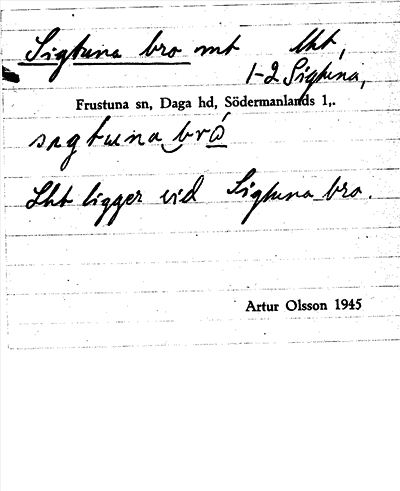 Sigtuna bro mt lht,
1-2 Sigtuna,
Frustuna sn, Daga hd, Södermanlands l,.
sıgtuna brω
Lht ligger vid Sigtuna bro.
Artur Olsson 1945